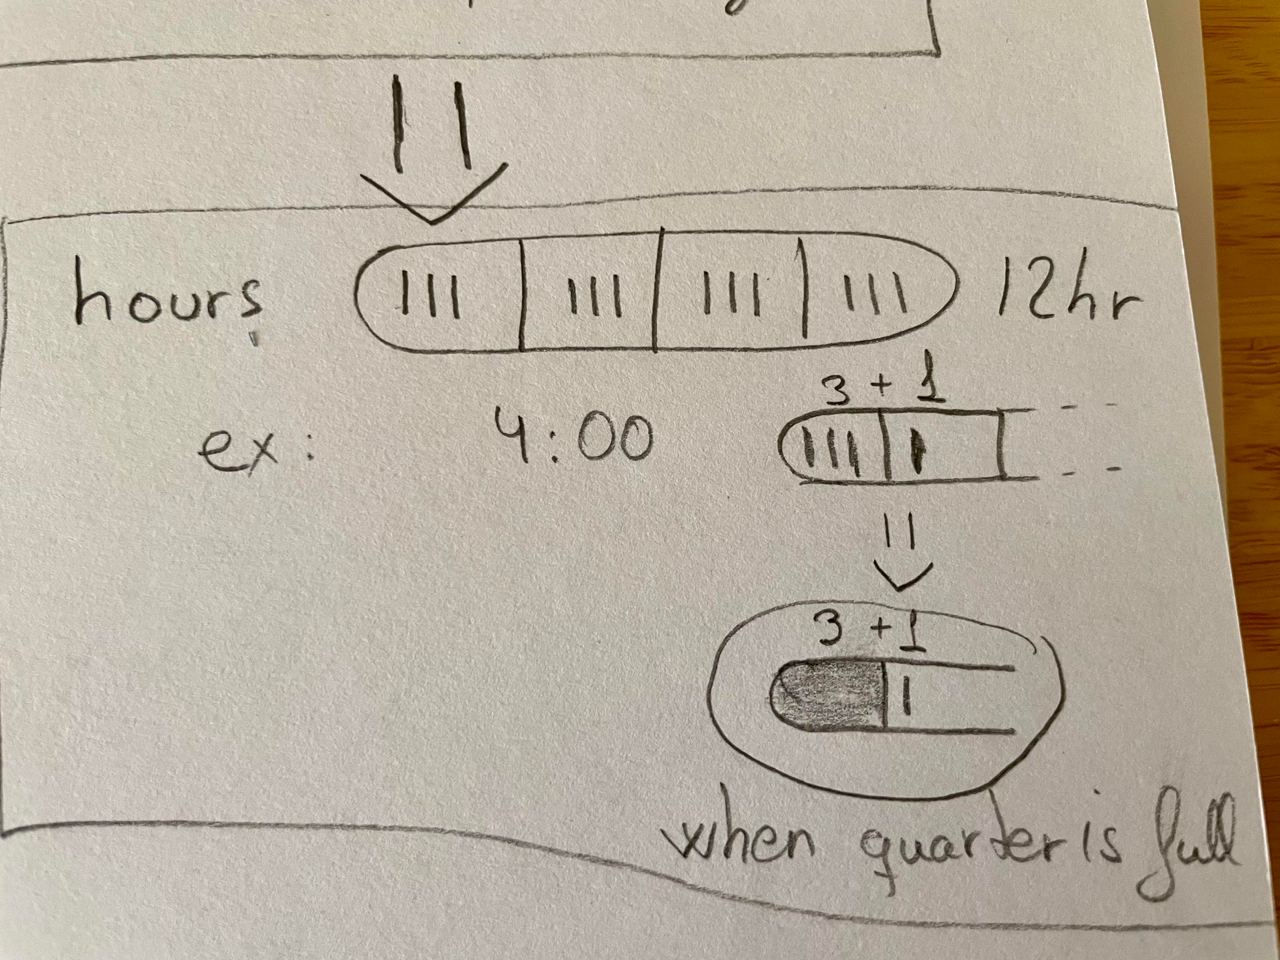 hours 12hr
3 + 1
ex: 4:00
3 + 1
when quarter is full